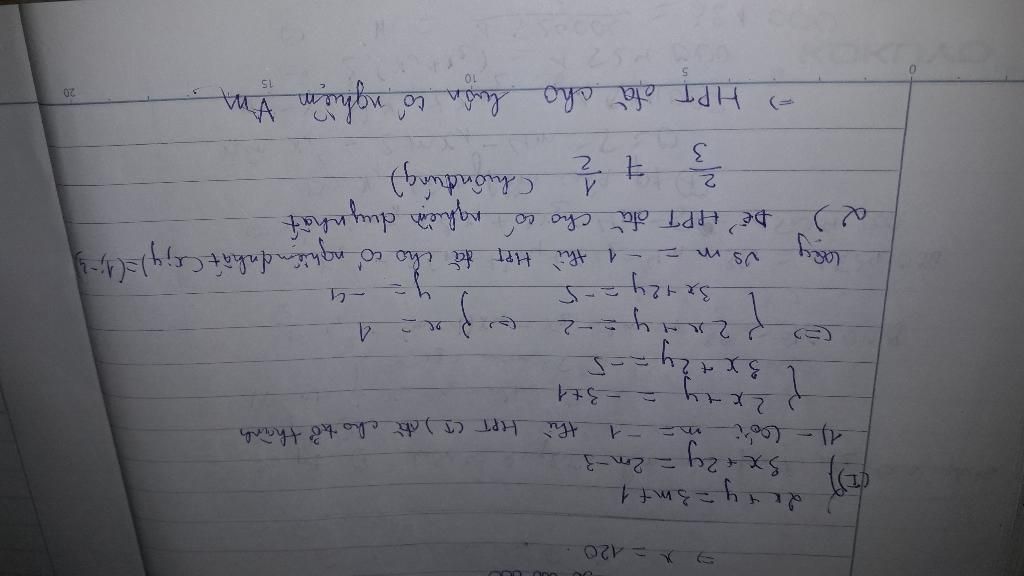 ⇒ x = 120.
(I) { 2x + y = 3m + 1
3x + 2y = 2m - 3
1) - Với m = -1 thì HPT (I) đã cho trở thành
{ 2x + y = -3+1
3x + 2y = -5
⇔ { 2x + y = -2 ⇔ { x = 1
3x + 2y = -5 y = -4
Vậy vs m = -1 thì HPT đã cho có nghiệm (x,y) = (1;-3)
2) Để HPT đã cho có nghiệm duy nhất
2/3 ≠ 1/2 (luôn đúng)
⇒ HPT đã cho luôn có nghiệm ∀m
0 5 10 15 20